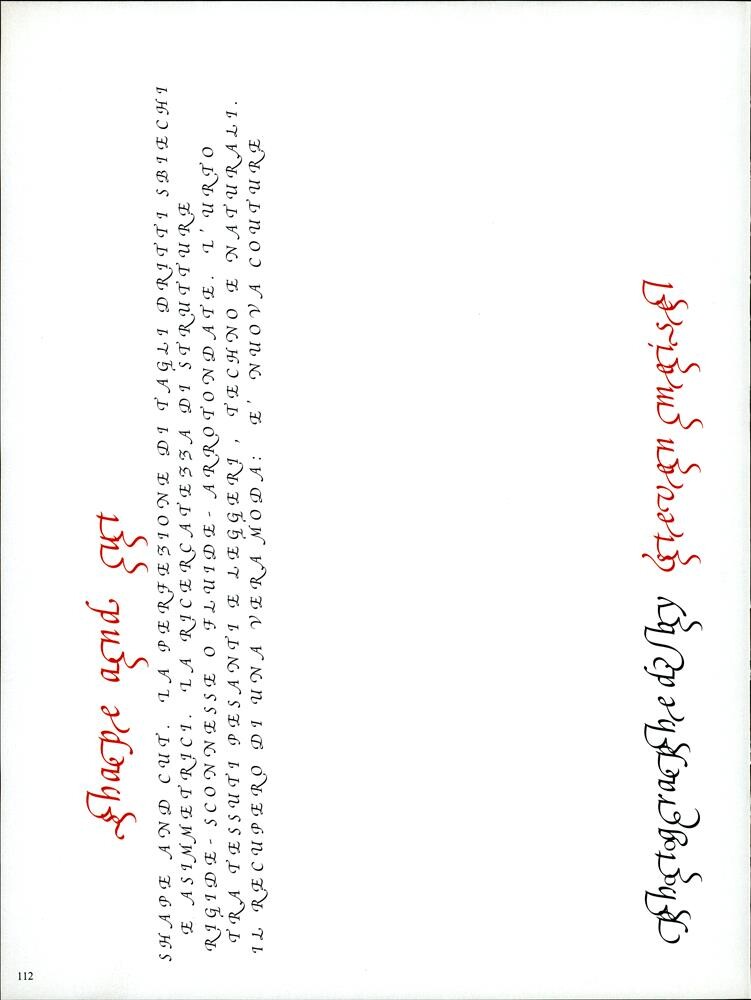 Shape and Cut
SHAPE AND CUT. LA PERFEZIONE DI TAGLI DRITTI SBIECHI
E ASIMMETRICI. LA RICERCATEZZA DI STRUTTURE
RIGIDE-SCONNESSE O FLUIDE-ARROTONDATE. L'URTO
TRA TESSUTI PESANTI E LEGGERI, TECHNO E NATURALI.
IL RECUPERO DI UNA VERA MODA: E' NUOVA COUTURE
Photographed by
112